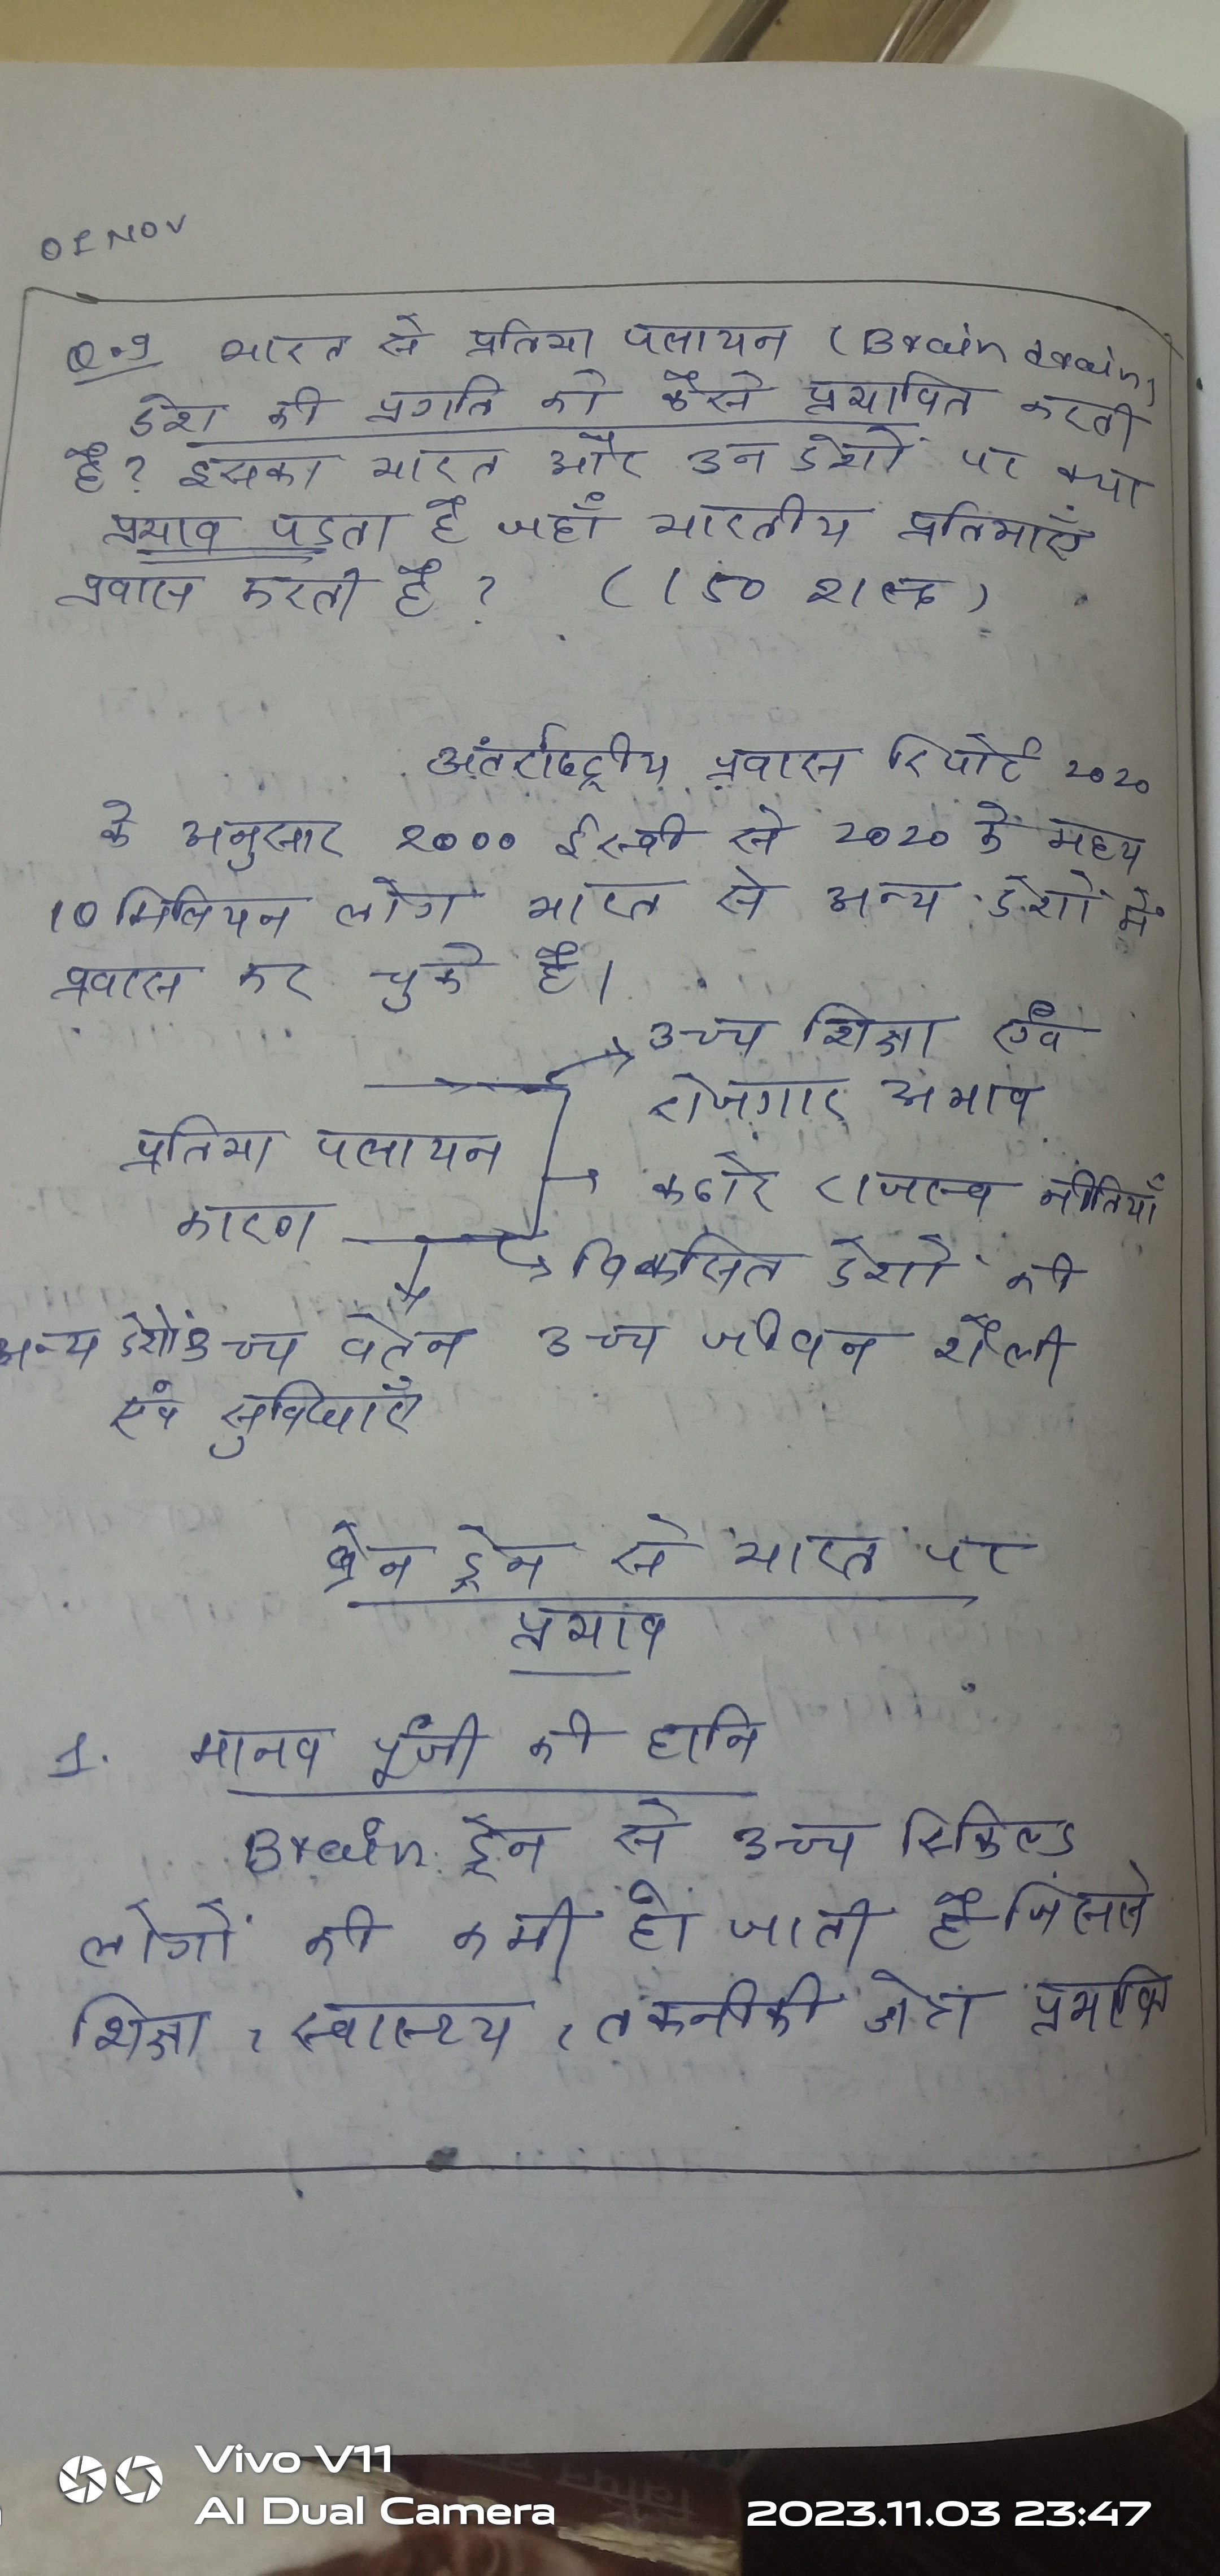 01 NOV
Q.9 भारत से प्रतिभा पलायन (Brain drain)
देश की प्रगति को कैसे प्रभावित करती
है? इसका भारत और उन देशों पर क्या
प्रभाव पड़ता है जहाँ भारतीय प्रतिभाएँ
प्रवास करती है? (150 शब्द)
अंतर्राष्ट्रीय प्रवास रिपोर्ट 2020
के अनुसार 2000 ईस्वी से 2020 के मध्य
10 मिलियन लोग भारत से अन्य देशों में
प्रवास कर चुके है।
उच्च शिक्षा एंव
रोजगार अभाव
प्रतिभा पलायन
कारण
कठोर राजस्व नीतियाँ
विकसित देशों की
उच्च जीवन शैली
अन्य देशों उच्च वेतन
एंव सुविधाएँ
ब्रेन ड्रेन से भारत पर
प्रभाव
1. मानव पूँजी की हानि
Brain ड्रेन से उच्च स्किल्ड
लोगों की कमी हो जाती है जिससे
शिक्षा, स्वास्थ्य, तकनीकी क्षेत्र प्रभावि
Vivo V11
AI Dual Camera
2023.11.03 23:47